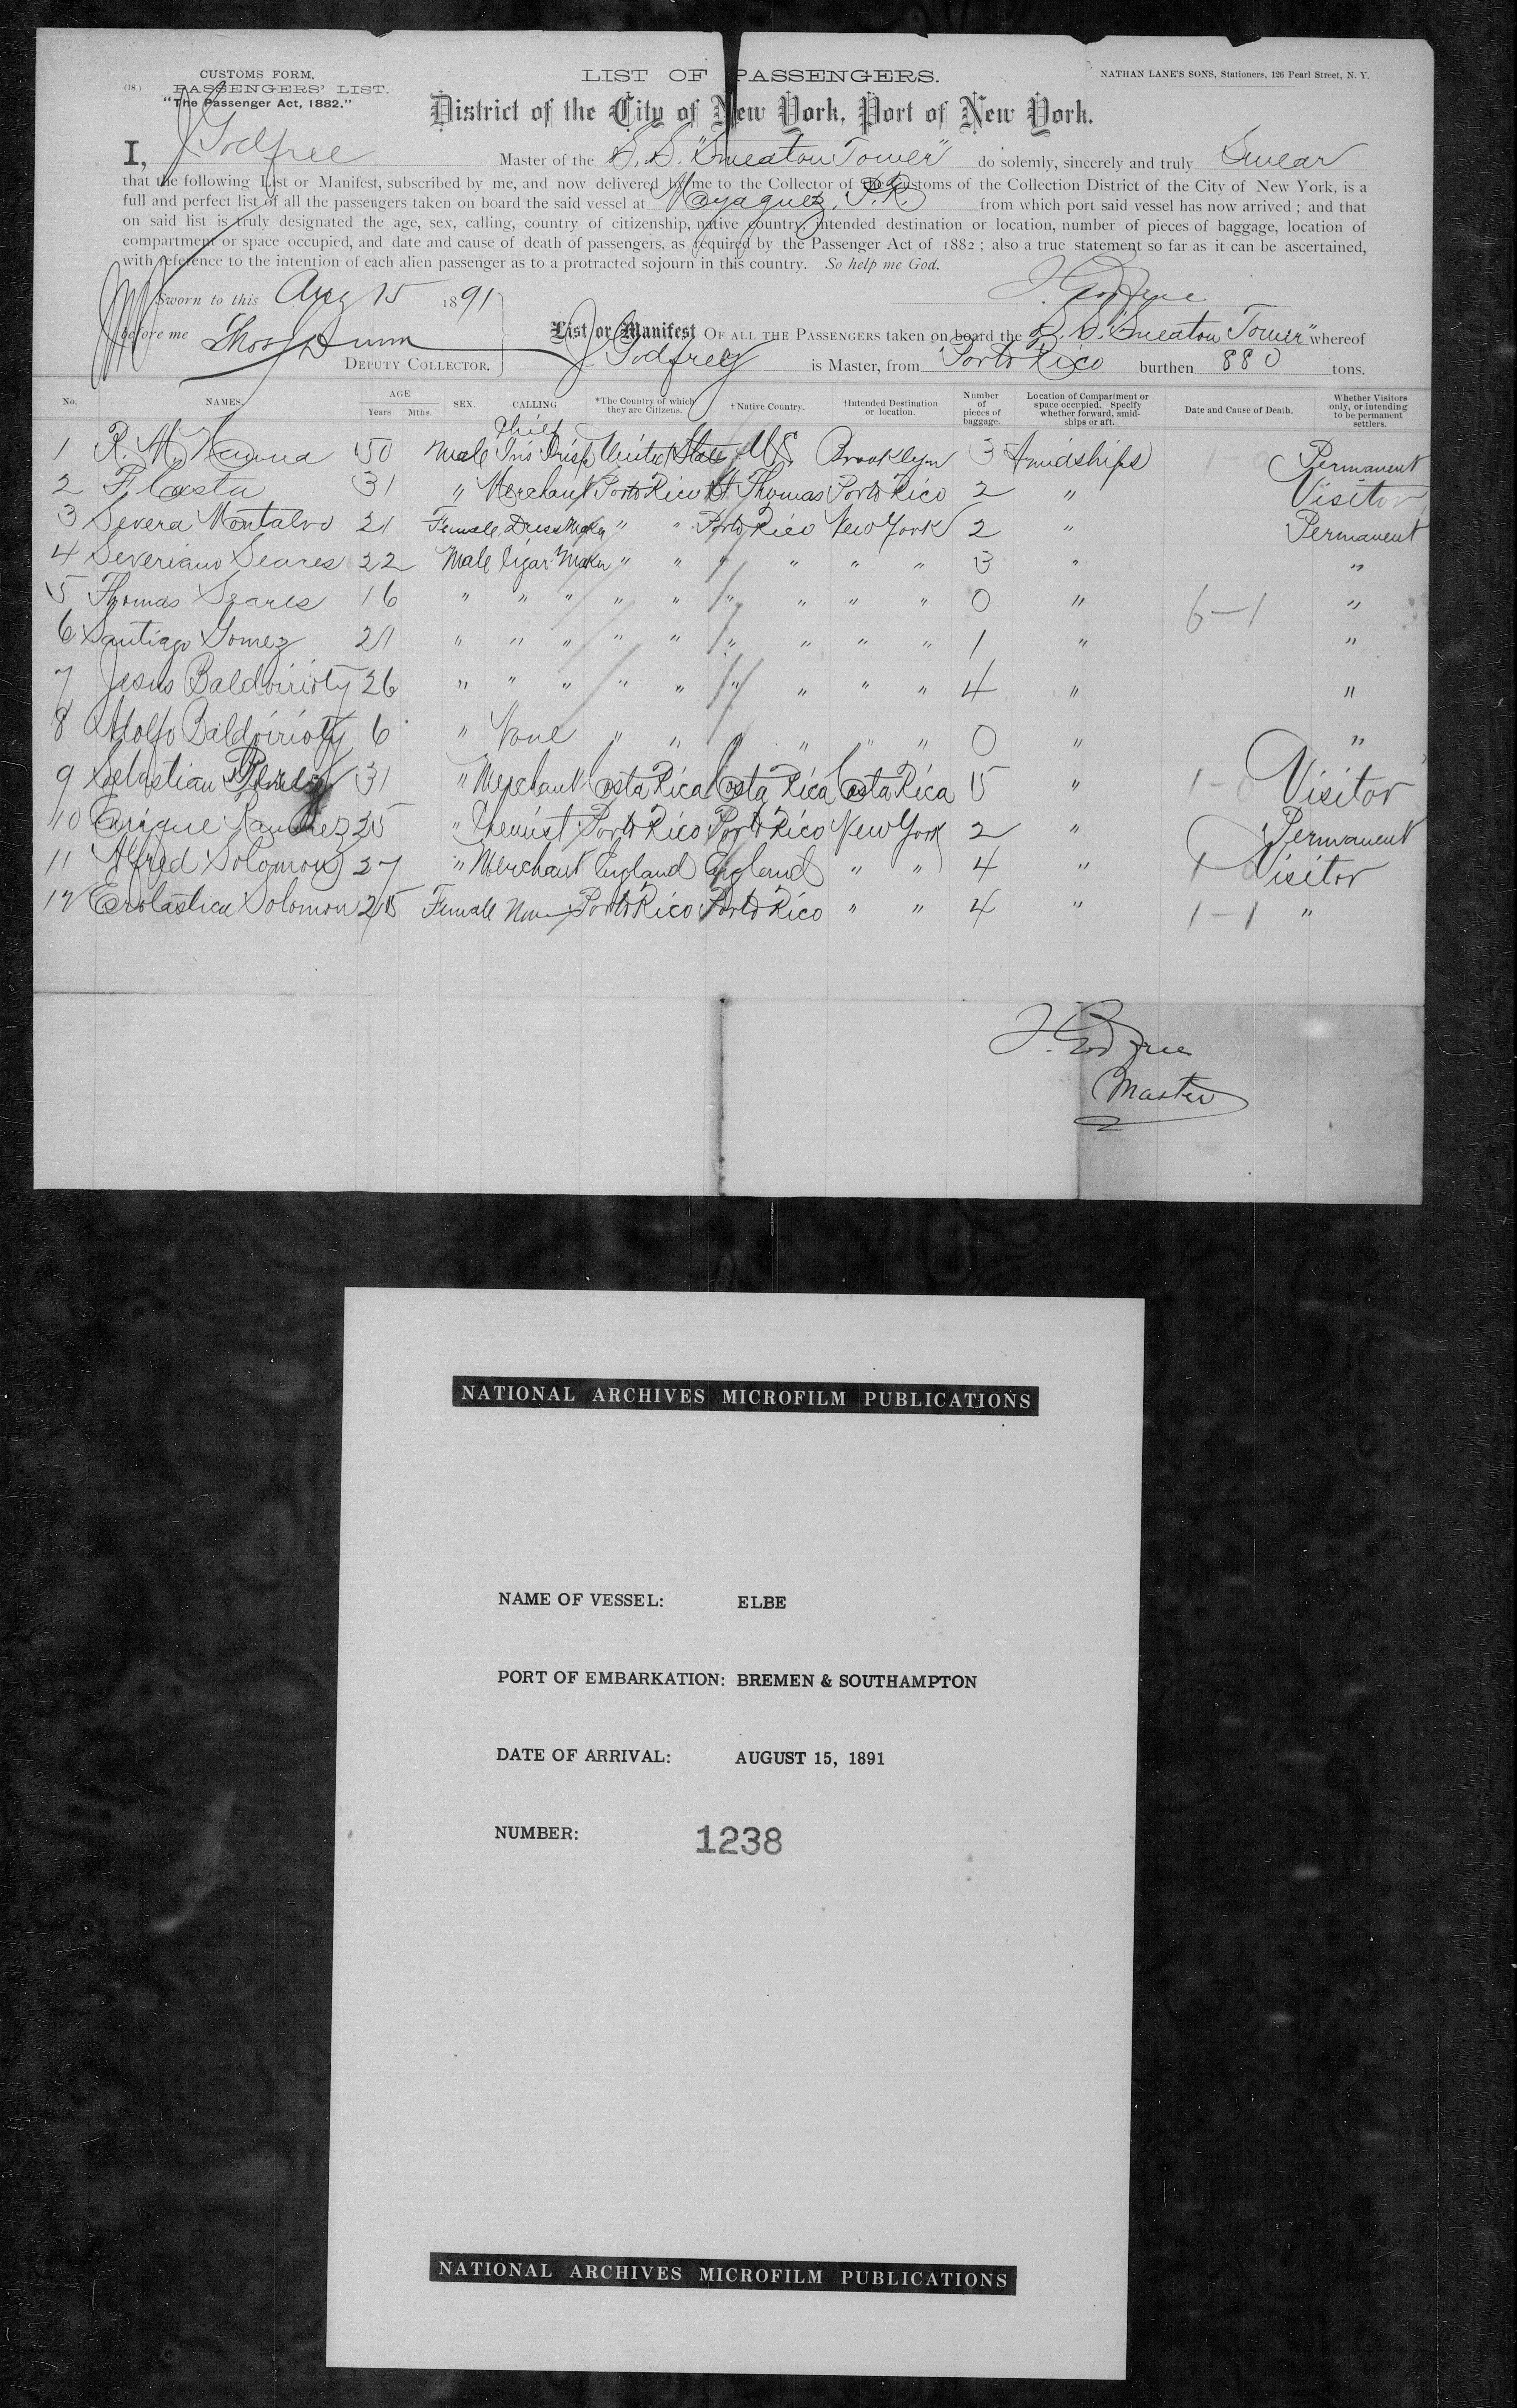 (18.)
CUSTOMS FORM.
PASSENGERS' LIST.
"The Passenger Act, 1882."
LIST OF PASSENGERS.
NATHAN LANE'S SONS, Stationers, 126 Pearl Street, N. Y.
District of the City of New York, Port of New York.
I, J Godfree Master of the S. S. "Smeaton Tower" do solemnly, sincerely and truly Swear
that the following List or Manifest, subscribed by me, and now delivered by me to the Collector of the Customs of the Collection District of the City of New York, is a
full and perfect list of all the passengers taken on board the said vessel at Mayaguez, P.R. from which port said vessel has now arrived; and that
on said list is truly designated the age, sex, calling, country of citizenship, native country, intended destination or location, number of pieces of baggage, location of
compartment or space occupied, and date and cause of death of passengers, as required by the Passenger Act of 1882; also a true statement so far as it can be ascertained,
with reference to the intention of each alien passenger as to a protracted sojourn in this country. So help me God.
J. Godfree
Sworn to this Aug 15 1891
before me Thos J Dunn
DEPUTY COLLECTOR.
List or Manifest OF ALL THE PASSENGERS taken on board the S. S. "Smeaton Tower" whereof
J Godfrey is Master, from Porto Rico burthen 880 tons.
No. NAMES. AGE Years Mths. SEX. CALLING *The Country of which they are Citizens. †Native Country. †Intended Destination or location. Number of pieces of baggage. Location of Compartment or space occupied. Specify whether forward, amidships or aft. Date and Cause of Death. Whether Visitors only, or intending to be permanent settlers.
1 R. M. Hanna 50 Male United States U.S. Brooklyn 3 Amidships 1-0 Permanent
2 F Costa 31 " Merchant Porto Rico St Thomas Porto Rico 2 " Visitor
3 Severa Montalvo 21 Female Dress Maker " " Porto Rico New York 2 " Permanent
4 Severiano Seares 22 Male Cigar Maker " " " " " " 3 " "
5 Thomas Seares 16 " " " " " " " " " 0 " 6-1 "
6 Santiago Gomez 21 " " " " " " " " " 1 " "
7 Jesus Baldoirioty 26 " " " " " " " " " 4 " "
8 Adolfo Baldoirioty 6 " None " " " " " " 0 " "
9 Sebastian 31 " Merchant Costa Rica Costa Rica Costa Rica 15 " 1-0 Visitor
10 Enrique Ramirez 25 " Chemist Porto Rico Porto Rico New York 2 " Permanent
11 Alfred Solomon 27 " Merchant England England " " 4 " Visitor
12 Solomon Female None Porto Rico Porto Rico " " 4 " 1-1 "
J. Godfree
Master
NATIONAL ARCHIVES MICROFILM PUBLICATIONS
NAME OF VESSEL: ELBE
PORT OF EMBARKATION: BREMEN & SOUTHAMPTON
DATE OF ARRIVAL: AUGUST 15, 1891
NUMBER: 1238
NATIONAL ARCHIVES MICROFILM PUBLICATIONS